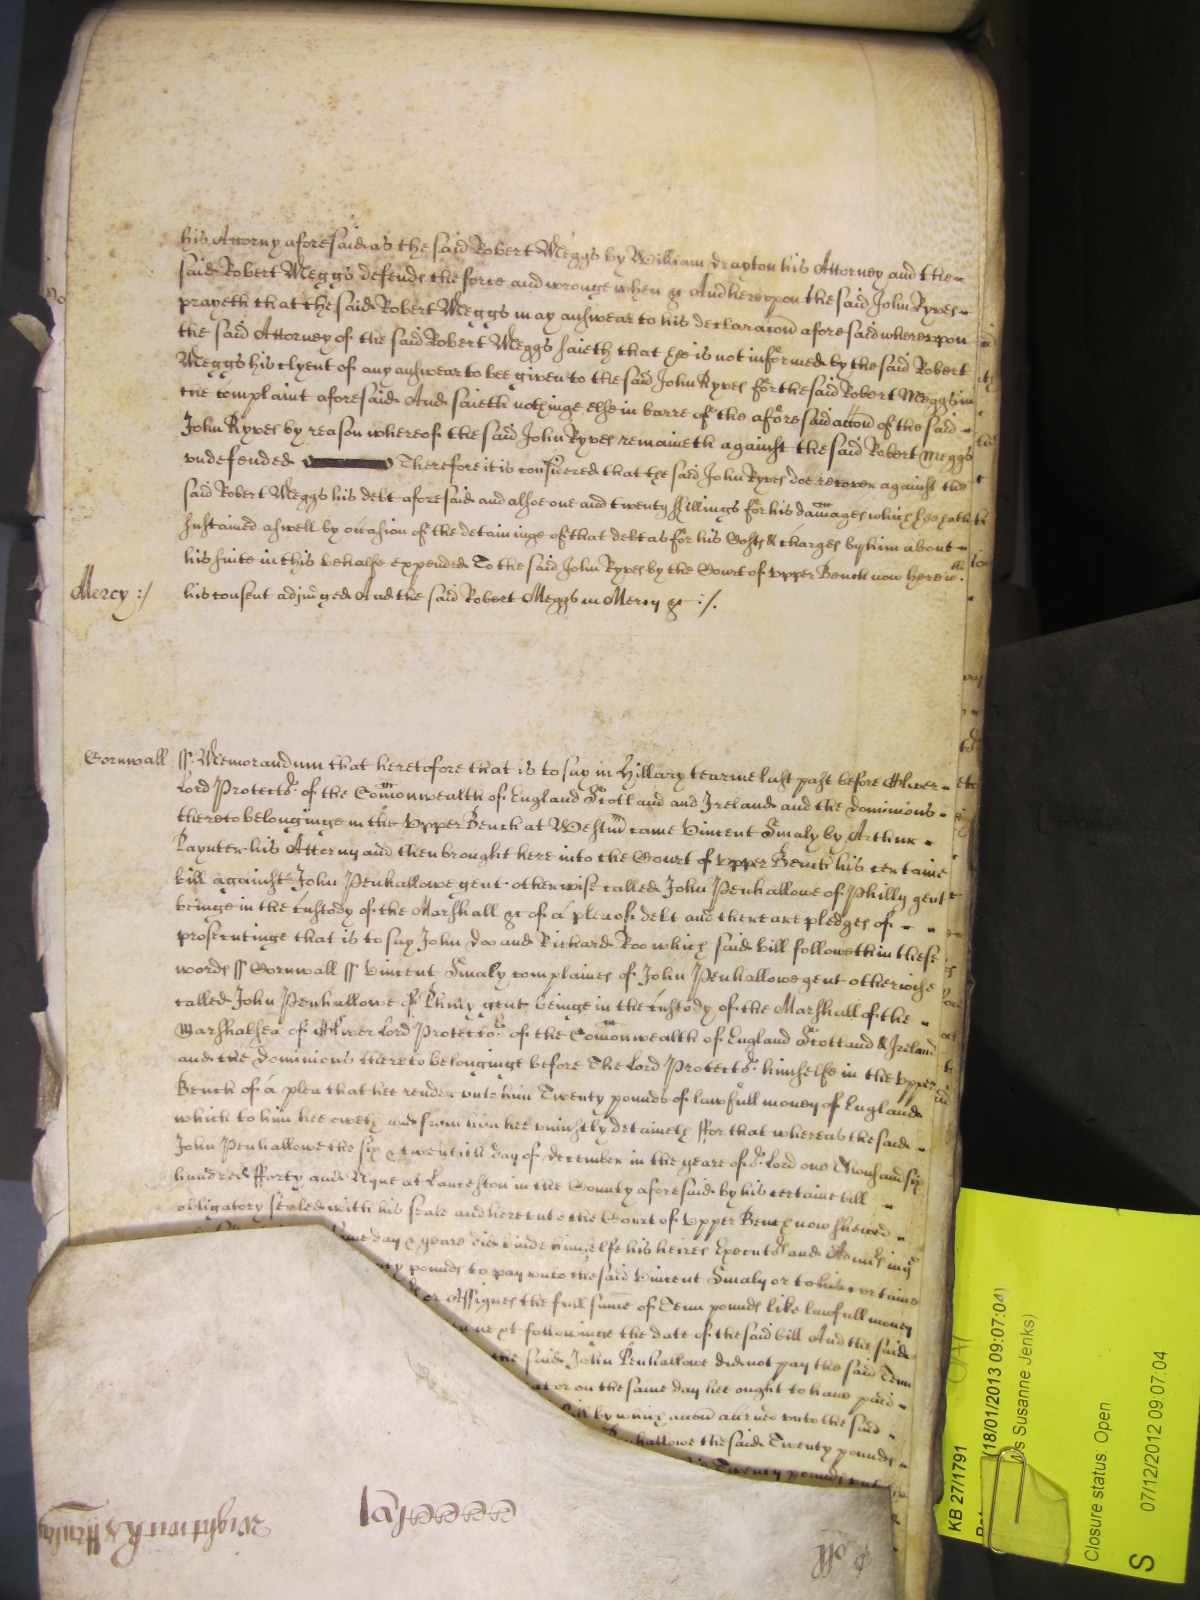 his Attorny aforesaid as the said Robert Meggs by William drayton his Attorney and the
said Robert Meggs defends the force and wronge when &c And hereuppon the said John Ryves
prayeth that the said Robert Meggs may answear to his declaracon aforesaid whereuppon
the said Attorney of the said Robert Meggs saieth that hee is not informed by the said Robert
Meggs his clyent of any answear to bee given to the said John Ryves for the said Robert Meggs in
the complaint aforesaid And saieth nothinge else in barre of the aforesaid accon of the said
John Ryves by reason whereof the said John Ryves remaineth against the said Robert Meggs
undefended Therefore it is considered that the said John Ryves doe recover against the
said Robert Meggs his debt aforesaid and alsoe one and twenty shillings for his damages which hee hath
sustained aswell by occasion of the detaininge of that debt as for his Costs & charges by him about
his suite in this behalfe expended To the said John Ryves by the Court of upper Bench now here wth
Mercy :/ his consent adjudged And the said Robert Meggs in Mercy &c :/.
Cornwall ss. Memorandum that heretofore that is to say in Hillary tearme last past before Oliver
Lord Protector of the Comonwealth of England Scotland and Ireland and the dominions
thereto belonginge in the Upper Bench at Westm came Vincent Smaly by Arthur
Paynter his Attorny and then brought here into the Court of upper Bench his certaine
bill against John Penhallowe gent otherwise called John Penhallowe of Philly gent
beinge in the custody of the Marshall &c of a plea of debt and there are pledges of
prosecutinge that is to say John Doo and Richard Roo which said bill followeth in these
words ss Cornwall ss Vincent Smaly complaines of John Penhallowe gent otherwise
called John Penhallowe of Philly gent beinge in the custody of the Marshall of the
Marshalsea of Oliver Lord Protector of the Comonwealth of England Scotland & Ireland
and the dominions thereto belonginge before The Lord Protector himselfe in the upper
Bench of a plea that hee render unto him Twenty pounds of lawfull money of England
which to him hee oweth and from him hee uniustly detaineth ffor that whereas the said
John Penhallowe the six & twentith day of december in the yeare of or Lord one Thousand six
hundred fforty and Nyne at Lanceston in the County aforesaid by his certaine bill
obligatory sealed with his seale and here unto the Court of upper Bench now shewed
same day & yeare did binde himselfe his heires Executors and
pounds to pay unto the said Vincent Smaly or to his certaine
or Assignes the full sume of Tenn pounds like lawfull money
followinge the date of the said bill And the said
the said John Penhallowe did not pay the said Tenn
at or on the same day hee ought to have paid
bill by which accon accrued unto the said
the said Twenty pounds
Twenty pounds
Roll
KB 27/1791
(18/01/2013 09:07:04)
s Susanne Jenks)
Closure status: Open
S 07/12/2012 09:07:04